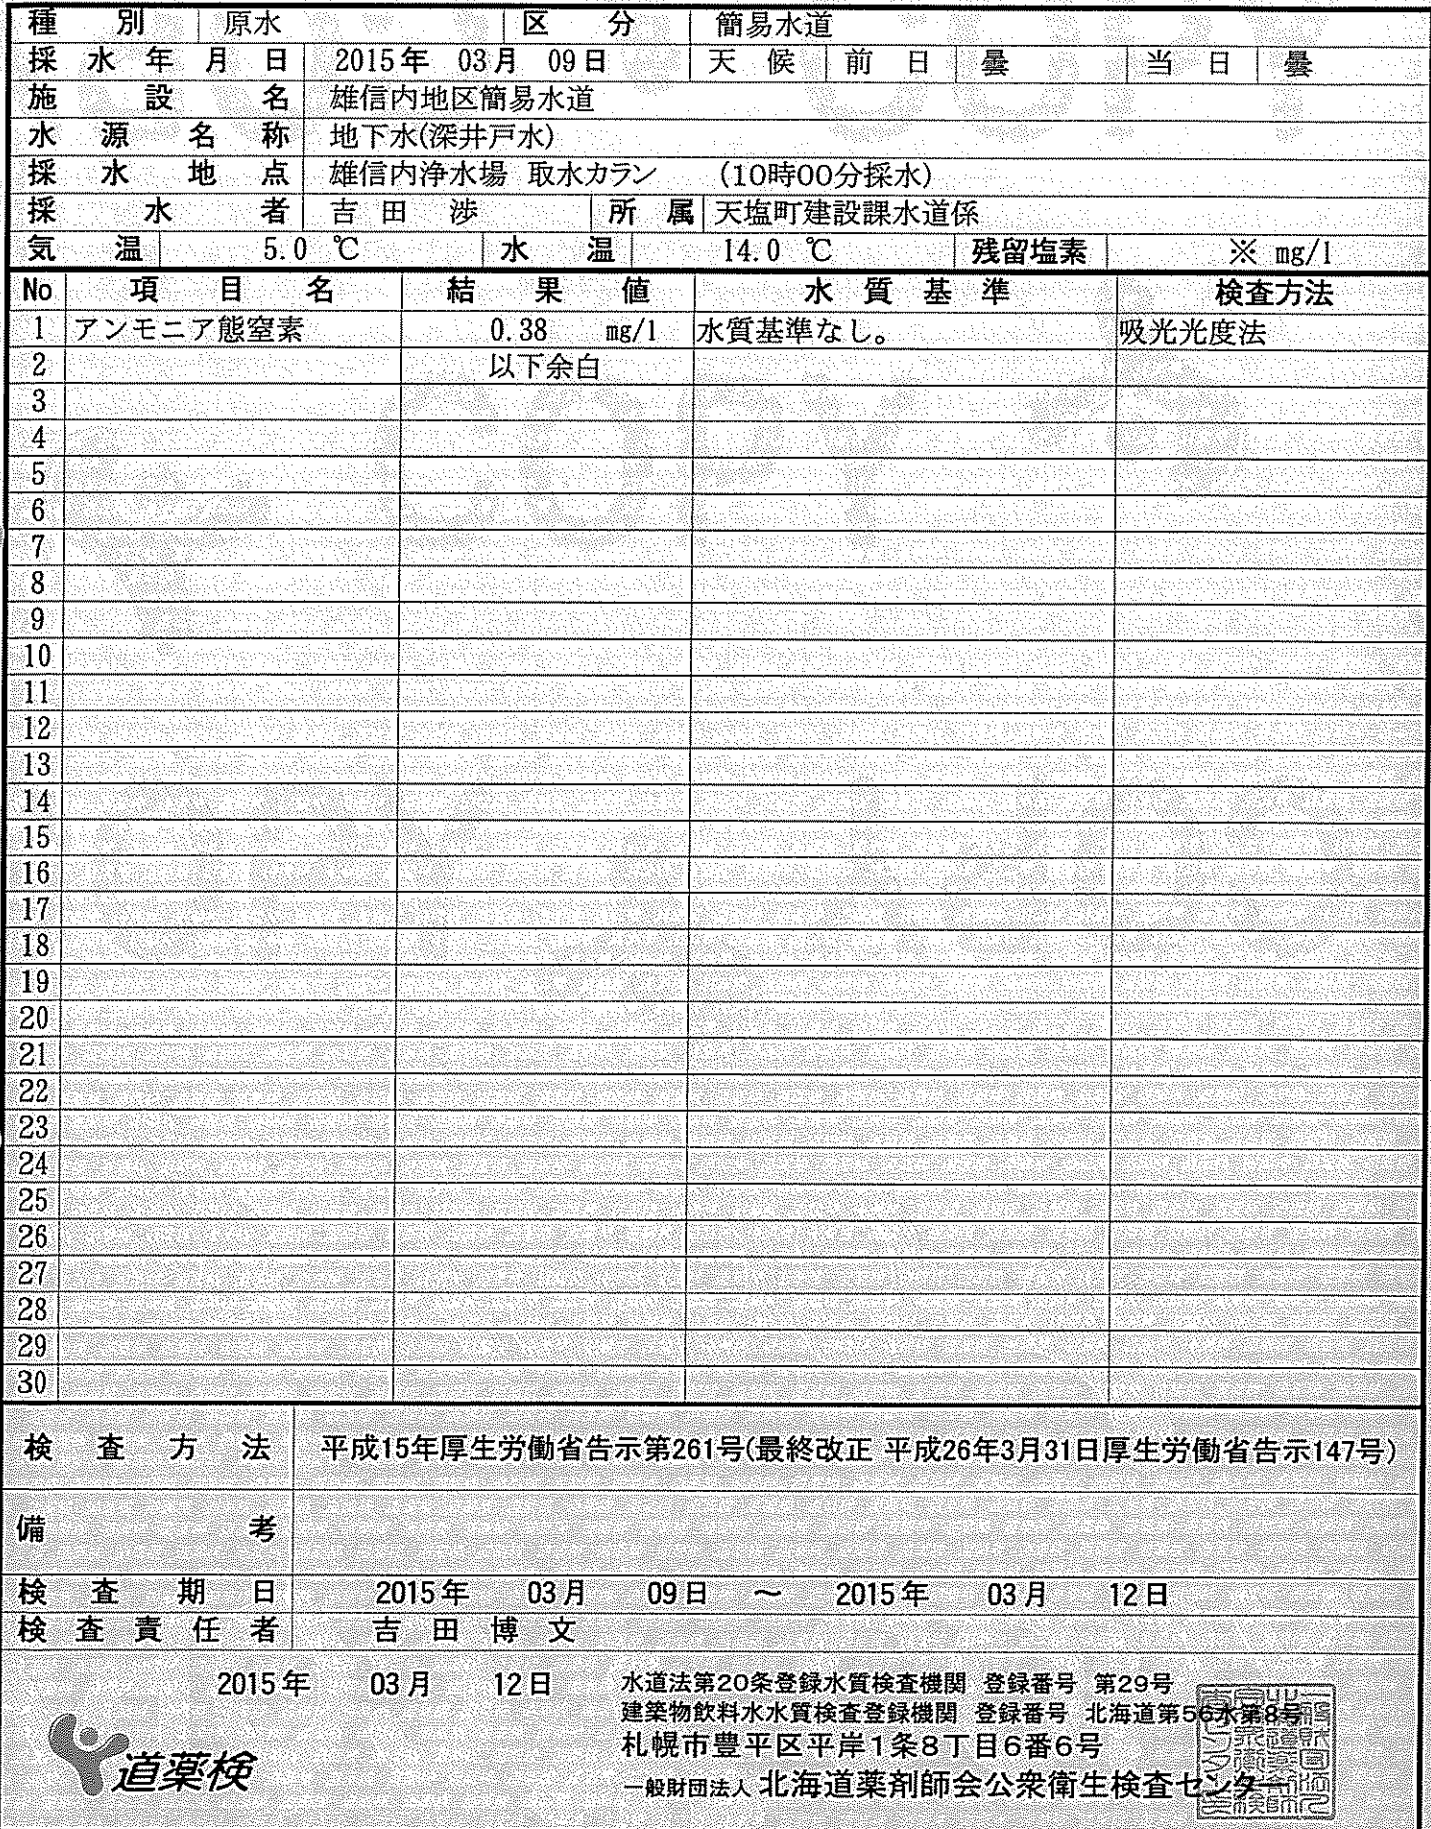 種 別 原水 区 分 簡易水道
採 水 年 月 日 2015年 03月 09日 天 候 前 日 曇 当 日 曇
施 設 名 雄信内地区簡易水道
水 源 名 称 地下水(深井戸水)
採 水 地 点 雄信内浄水場 取水カラン (10時00分採水)
採 水 者 吉 田 渉 所 属 天塩町建設課水道係
気 温 5.0 ℃ 水 温 14.0 ℃ 残留塩素 ※ mg/l
No 項 目 名 結 果 値 水 質 基 準 検査方法
1 アンモニア態窒素 0.38 mg/l 水質基準なし。 吸光光度法
2 以下余白
3
4
5
6
7
8
9
10
11
12
13
14
15
16
17
18
19
20
21
22
23
24
25
26
27
28
29
30
検 査 方 法 平成15年厚生労働省告示第261号(最終改正 平成26年3月31日厚生労働省告示147号)
備 考
検 査 期 日 2015年 03月 09日 ～ 2015年 03月 12日
検 査 責 任 者 吉 田 博 文
2015年 03月 12日
水道法第20条登録水質検査機関 登録番号 第29号
建築物飲料水水質検査登録機関 登録番号 北海道第56水第8号
札幌市豊平区平岸1条8丁目6番6号
一般財団法人 北海道薬剤師会公衆衛生検査センター
道薬検